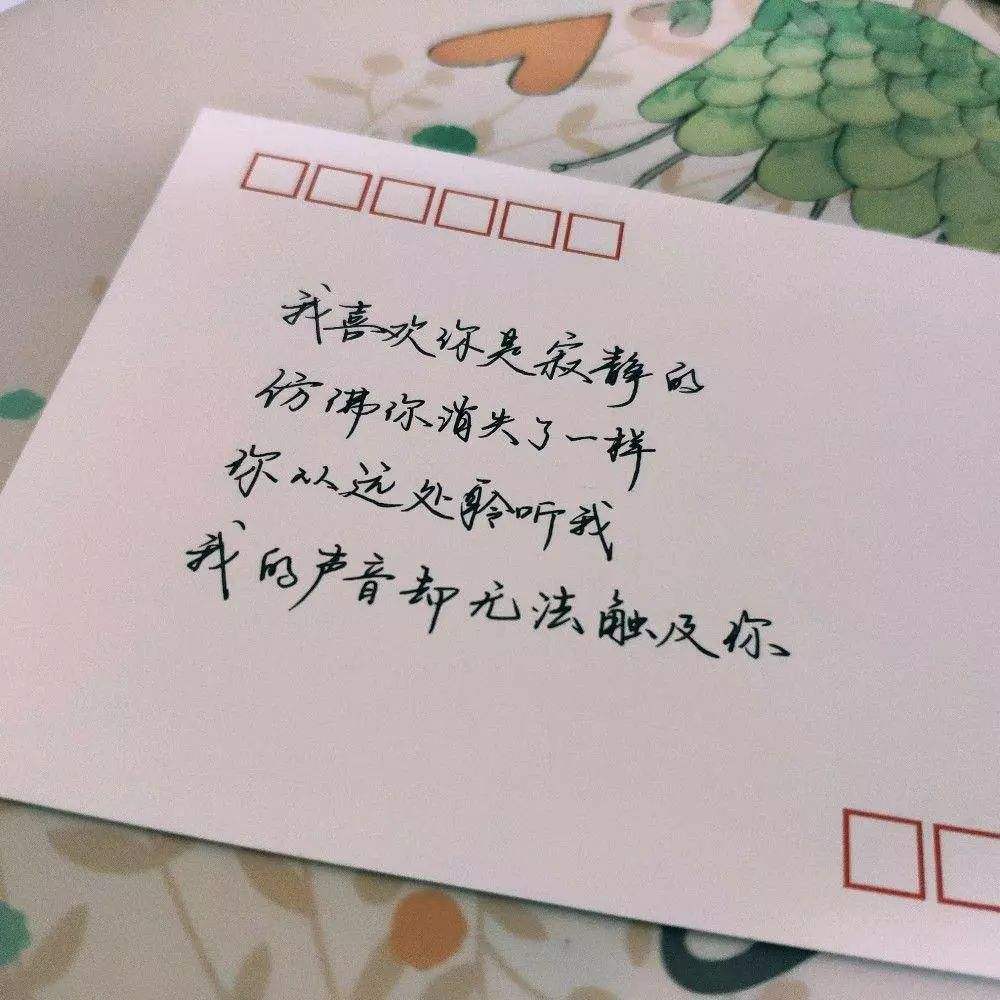 我喜欢你是寂静的
仿佛你消失了一样
你从远处聆听我
我的声音却无法触及你